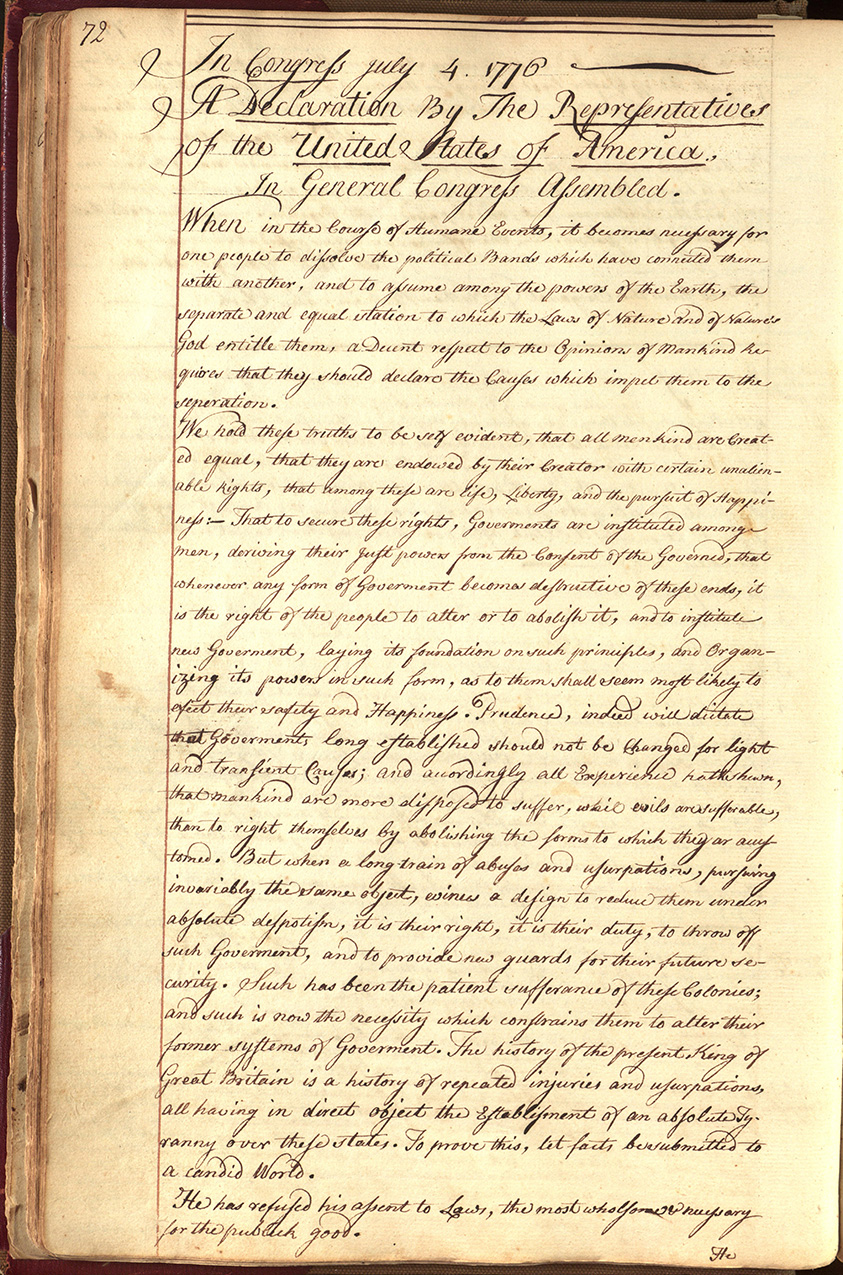 72
In Congress july 4. 1776
A Declaration By The Representatives
of the United States of America,
In General Congress Assembled.
When in the Course of Humane Events, it becomes necessary for
one people to dissolve the political Bands which have connected them
with another, and to assume among the powers of the Earth, the
separate and equal station to which the Laws of Nature and of Nature's
God entitle them, a Decent respect to the Opinions of Mankind Re-
quires that they should declare the Causes which impel them to the
seperation.
We hold these truths to be self evident, that all menkind are Creat-
ed equal, that they are endowed by their Creator with certain unalien-
able Rights, that among these are life, Liberty, and the pursuit of Happi-
ness:— That to secure these rights, Goverments are instituted among
men, deriving their Just powers from the Consent of the Governed, that
whenever any form of Goverment becomes destructive of these ends, it
is the right of the people to alter or to abolish it, and to institute
new Goverment, laying its foundation on such principles, and Organ-
izing its powers in such form, as to them shall seem most likely to
efect their safety and Happiness. Prudence, indeed will dictate
that Goverments long established should not be Changed for light
and transient Causes; and acordingly all Experience hath shewn,
that mankind are more disposed to suffer, while evils are sufferable,
than to right themselves by abolishing the forms to which they ar acus
tomed. But when a long train of abuses and usurpations, pursuing
invariably the same object, evinces a design to reduce them under
absolute despotism, it is their right, it is their duty, to throw off
such Goverment, and to provide new guards for their future se-
curity. Such has been the patient sufferance of these Colonies;
and such is now the necessity which constrains them to alter their
former systems of Goverment. The history of the present King of
Great Britain is a history of repeated injuries and usurpations,
all having in direct object the Establisment of an absolute Ty-
ranny over these states. To prove this, let facts be submitted to
a candid World.
He has refused his assent to Laws, the most wholsome & necessary
for the publick good.
He